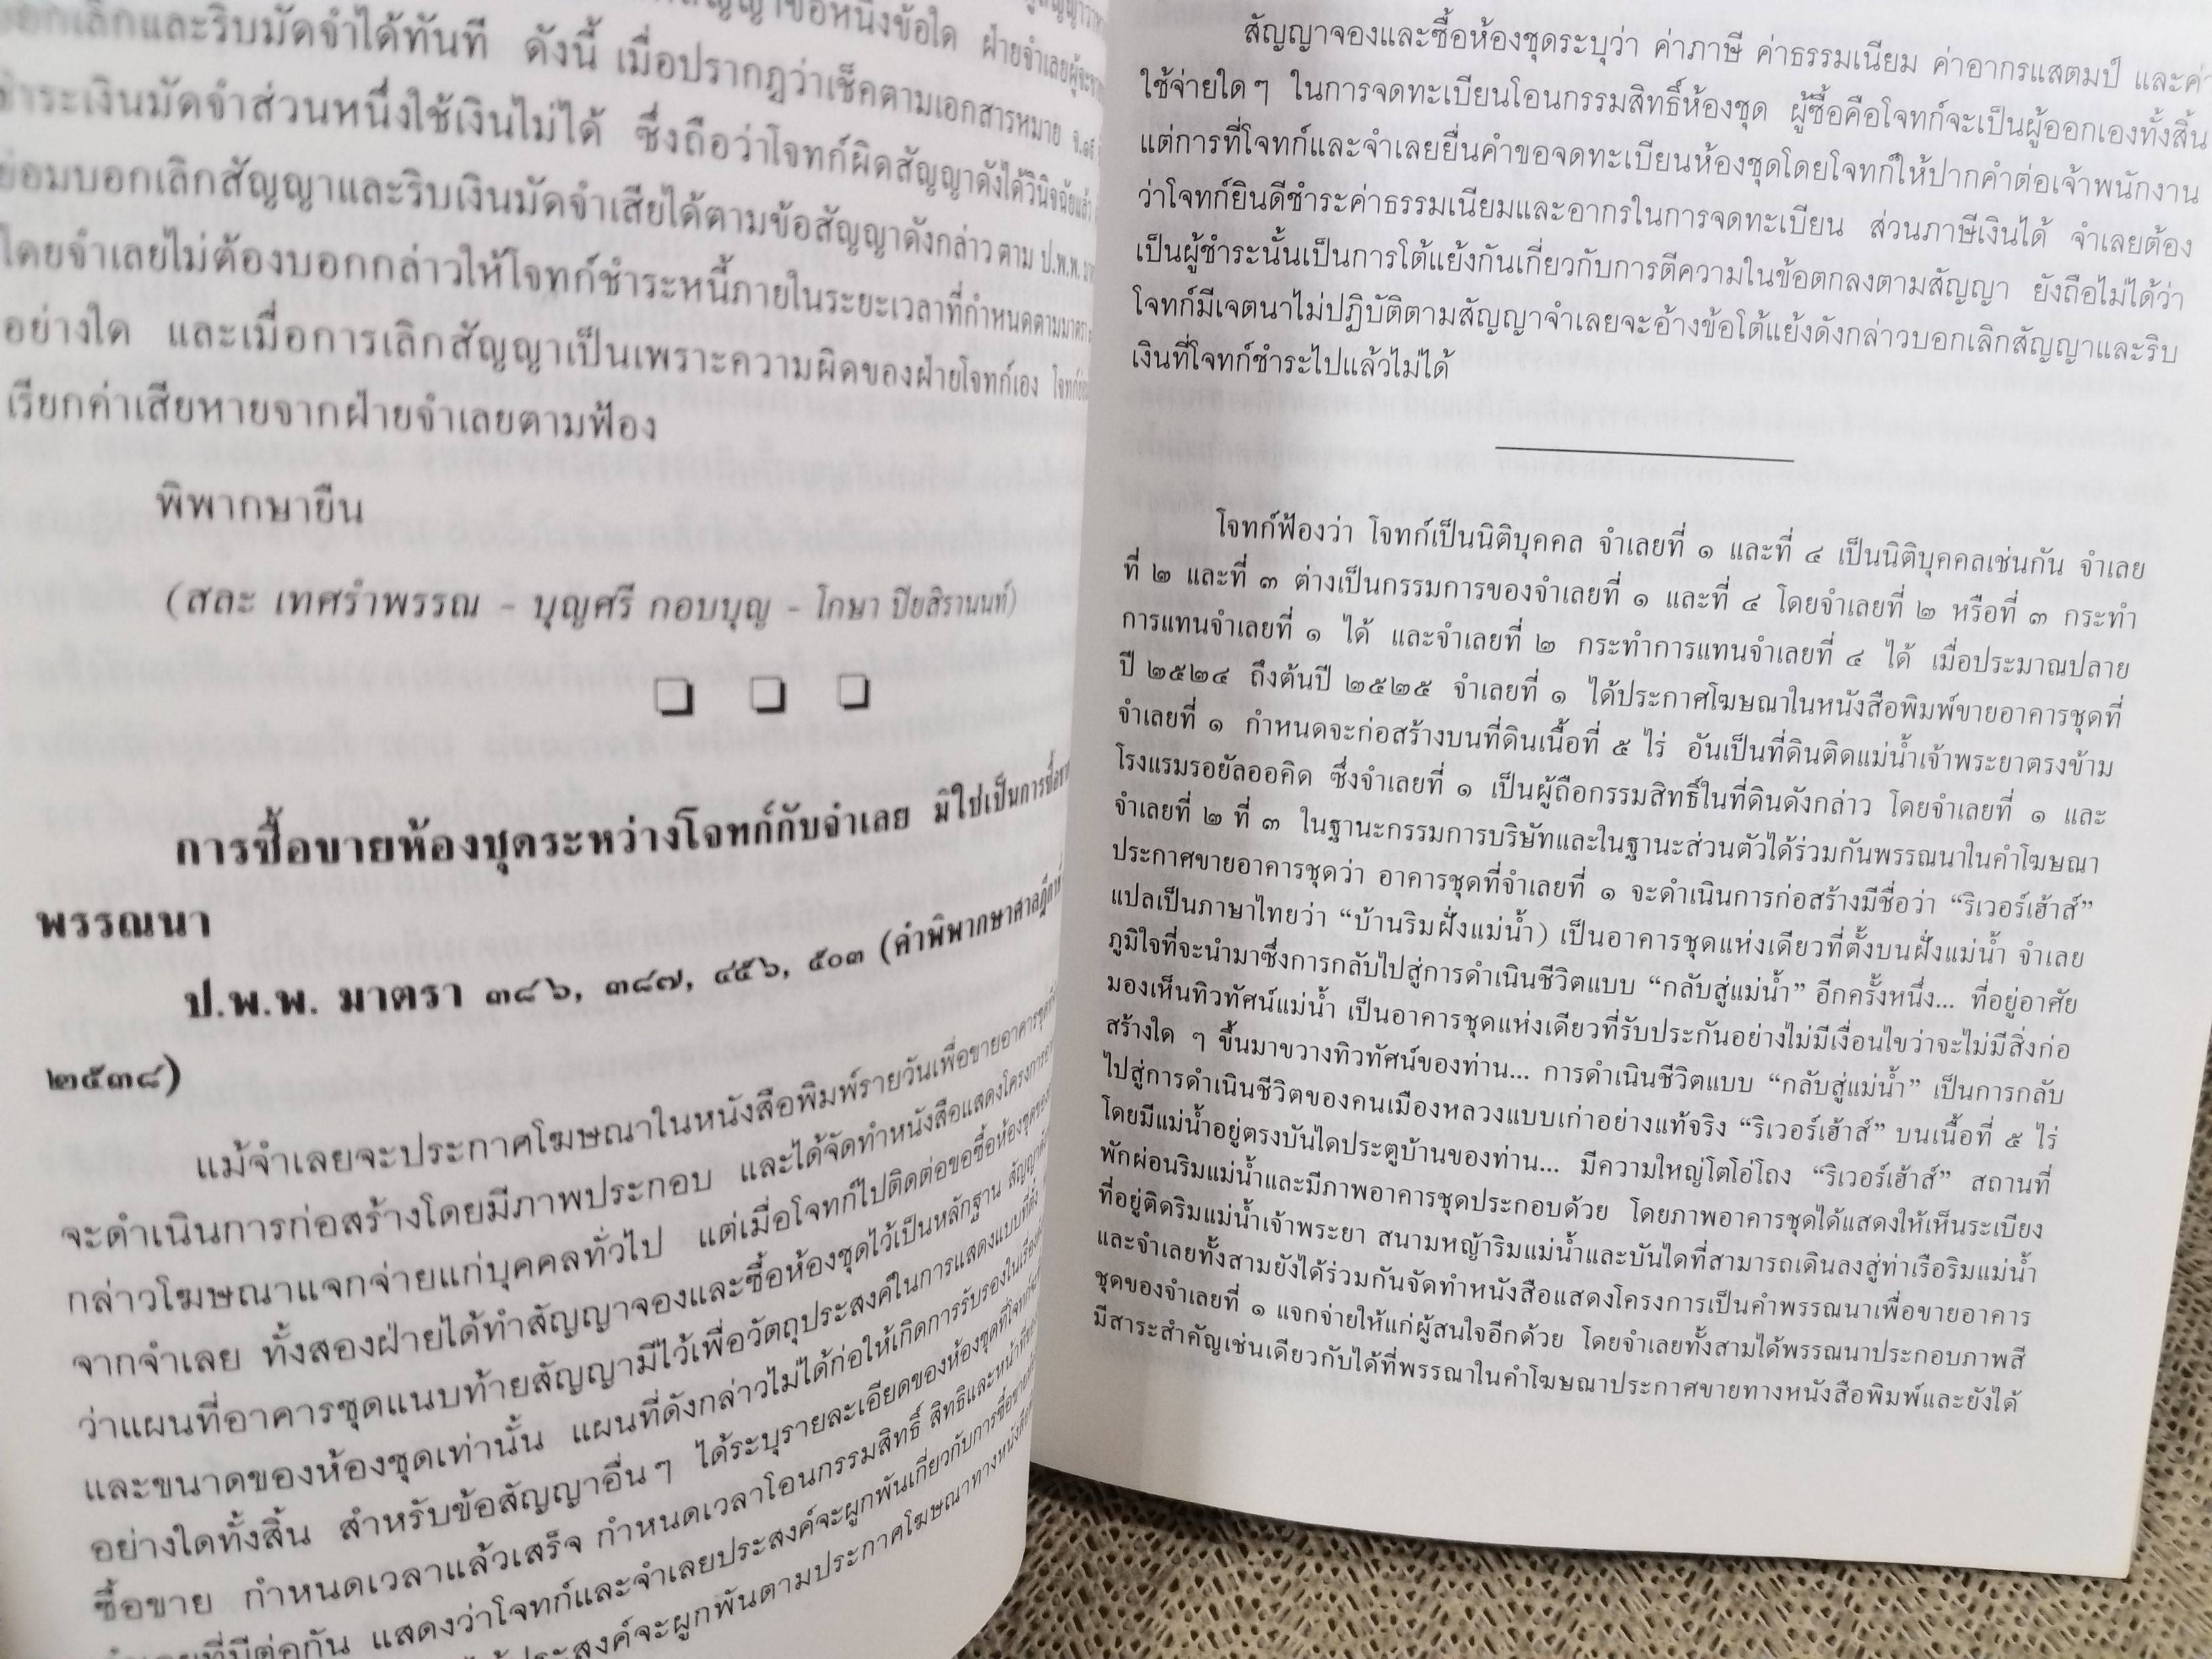 สัญญาข้อหนึ่งข้อใด ฝ่ายจำเลยผู้จะขาย
บอกเลิกและริบมัดจำได้ทันที ดังนี้ เมื่อปรากฏว่าเช็คตามเอกสารหมาย จ.๑๕
ชำระเงินมัดจำส่วนหนึ่งใช้เงินไม่ได้ ซึ่งถือว่าโจทก์ผิดสัญญาดังได้วินิจฉัยแล้ว
ย่อมบอกเลิกสัญญาและริบเงินมัดจำเสียได้ตามข้อสัญญาดังกล่าว ตาม ป.พ.พ.
โดยจำเลยไม่ต้องบอกกล่าวให้โจทก์ชำระหนี้ภายในระยะเวลาที่กำหนดตามมาตรา
อย่างใด และเมื่อการเลิกสัญญาเป็นเพราะความผิดของฝ่ายโจทก์เอง
เรียกค่าเสียหายจากฝ่ายจำเลยตามฟ้อง
พิพากษายืน
(สละ เทศรำพรรณ - บุญศรี กอบบุญ - โกษา ปิยสิรานนท์)
การซื้อขายห้องชุดระหว่างโจทก์กับจำเลย มิใช่เป็นการซื้อขาย
พรรณนา
ป.พ.พ. มาตรา ๓๘๖, ๓๘๗, ๔๕๖, ๕๐๓ (คำพิพากษาศาลฎีกาที่
๒๕๓๘)
แม้จำเลยจะประกาศโฆษณาในหนังสือพิมพ์รายวันเพื่อขายอาคารชุดที่
จะดำเนินการก่อสร้างโดยมีภาพประกอบ และได้จัดทำหนังสือแสดงโครงการ
กล่าวโฆษณาแจกจ่ายแก่บุคคลทั่วไป แต่เมื่อโจทก์ไปติดต่อขอซื้อห้องชุด
จากจำเลย ทั้งสองฝ่ายได้ทำสัญญาจองและซื้อห้องชุดไว้เป็นหลักฐาน
ว่าแผนที่อาคารชุดแนบท้ายสัญญามีไว้เพื่อวัตถุประสงค์ในการแสดงแบบที่ตั้ง
และขนาดของห้องชุดเท่านั้น แผนที่ดังกล่าวไม่ได้ก่อให้เกิดการรับรองในเรื่อง
อย่างใดทั้งสิ้น สำหรับข้อสัญญาอื่นๆ ได้ระบุรายละเอียดของห้องชุดที่โจทก์
ซื้อขาย กำหนดเวลาแล้วเสร็จ กำหนดเวลาโอนกรรมสิทธิ์ สิทธิและหน้าที่
ที่มีต่อกัน แสดงว่าโจทก์และจำเลยประสงค์จะผูกพันเกี่ยวกับการซื้อขาย
ประสงค์จะผูกพันตามประกาศโฆษณาทางหนังสือ
สัญญาจองและซื้อห้องชุดระบุว่า ค่าภาษี ค่าธรรมเนียม ค่าอากรแสตมป์ และค่า
ใช้จ่ายใดๆ ในการจดทะเบียนโอนกรรมสิทธิ์ห้องชุด ผู้ซื้อคือโจทก์จะเป็นผู้ออกเองทั้งสิ้น
แต่การที่โจทก์และจำเลยยื่นคำขอจดทะเบียนห้องชุดโดยโจทก์ให้ปากคำต่อเจ้าพนักงาน
ว่าโจทก์ยินดีชำระค่าธรรมเนียมและอากรในการจดทะเบียน ส่วนภาษีเงินได้ จำเลยต้อง
เป็นผู้ชำระนั้นเป็นการโต้แย้งกันเกี่ยวกับการตีความในข้อตกลงตามสัญญา ยังถือไม่ได้ว่า
โจทก์มีเจตนาไม่ปฏิบัติตามสัญญาจำเลยจะอ้างข้อโต้แย้งดังกล่าวบอกเลิกสัญญาและริบ
เงินที่โจทก์ชำระไปแล้วไม่ได้
โจทก์ฟ้องว่า โจทก์เป็นนิติบุคคล จำเลยที่ ๑ และที่ ๔ เป็นนิติบุคคลเช่นกัน จำเลย
ที่ ๒ และที่ ๓ ต่างเป็นกรรมการของจำเลยที่ ๑ และที่ ๔ โดยจำเลยที่ ๒ หรือที่ ๓ กระทำ
การแทนจำเลยที่ ๑ ได้ และจำเลยที่ ๒ กระทำการแทนจำเลยที่ ๔ ได้ เมื่อประมาณปลาย
ปี ๒๕๒๔ ถึงต้นปี ๒๕๒๕ จำเลยที่ ๑ ได้ประกาศโฆษณาในหนังสือพิมพ์ขายอาคารชุดที่
จำเลยที่ ๑ กำหนดจะก่อสร้างบนที่ดินเนื้อที่ ๕ ไร่ อันเป็นที่ดินติดแม่น้ำเจ้าพระยาตรงข้าม
โรงแรมรอยัลออคิด ซึ่งจำเลยที่ ๑ เป็นผู้ถือกรรมสิทธิ์ในที่ดินดังกล่าว โดยจำเลยที่ ๑ และ
จำเลยที่ ๒ ที่ ๓ ในฐานะกรรมการบริษัทและในฐานะส่วนตัวได้ร่วมกันพรรณนาในคำโฆษณา
ประกาศขายอาคารชุดว่า อาคารชุดที่จำเลยที่ ๑ จะดำเนินการก่อสร้างมีชื่อว่า “ริเวอร์เฮ้าส์”
แปลเป็นภาษาไทยว่า “บ้านริมฝั่งแม่น้ำ) เป็นอาคารชุดแห่งเดียวที่ตั้งบนฝั่งแม่น้ำ จำเลย
ภูมิใจที่จะนำมาซึ่งการกลับไปสู่การดำเนินชีวิตแบบ “กลับสู่แม่น้ำ” อีกครั้งหนึ่ง... ที่อยู่อาศัย
มองเห็นทิวทัศน์แม่น้ำ เป็นอาคารชุดแห่งเดียวที่รับประกันอย่างไม่มีเงื่อนไขว่าจะไม่มีสิ่งก่อ
สร้างใด ๆ ขึ้นมาขวางทิวทัศน์ของท่าน... การดำเนินชีวิตแบบ “กลับสู่แม่น้ำ” เป็นการกลับ
ไปสู่การดำเนินชีวิตของคนเมืองหลวงแบบเก่าอย่างแท้จริง “ริเวอร์เฮ้าส์” บนเนื้อที่ ๕ ไร่
โดยมีแม่น้ำอยู่ตรงบันไดประตูบ้านของท่าน... มีความใหญ่โตโอ่โถง “ริเวอร์เฮ้าส์” สถานที่
พักผ่อนริมแม่น้ำและมีภาพอาคารชุดประกอบด้วย โดยภาพอาคารชุดได้แสดงให้เห็นระเบียง
ที่อยู่ติดริมแม่น้ำเจ้าพระยา สนามหญ้าริมแม่น้ำและบันไดที่สามารถเดินลงสู่ท่าเรือริมแม่น้ำ
และจำเลยทั้งสามยังได้ร่วมกันจัดทำหนังสือแสดงโครงการเป็นคำพรรณนาเพื่อขายอาคาร
ชุดของจำเลยที่ ๑ แจกจ่ายให้แก่ผู้สนใจอีกด้วย โดยจำเลยทั้งสามได้พรรณนาประกอบภาพสี
มีสาระสำคัญเช่นเดียวกับได้ที่พรรณาในคำโฆษณาประกาศขายทางหนังสือพิมพ์และยังได้